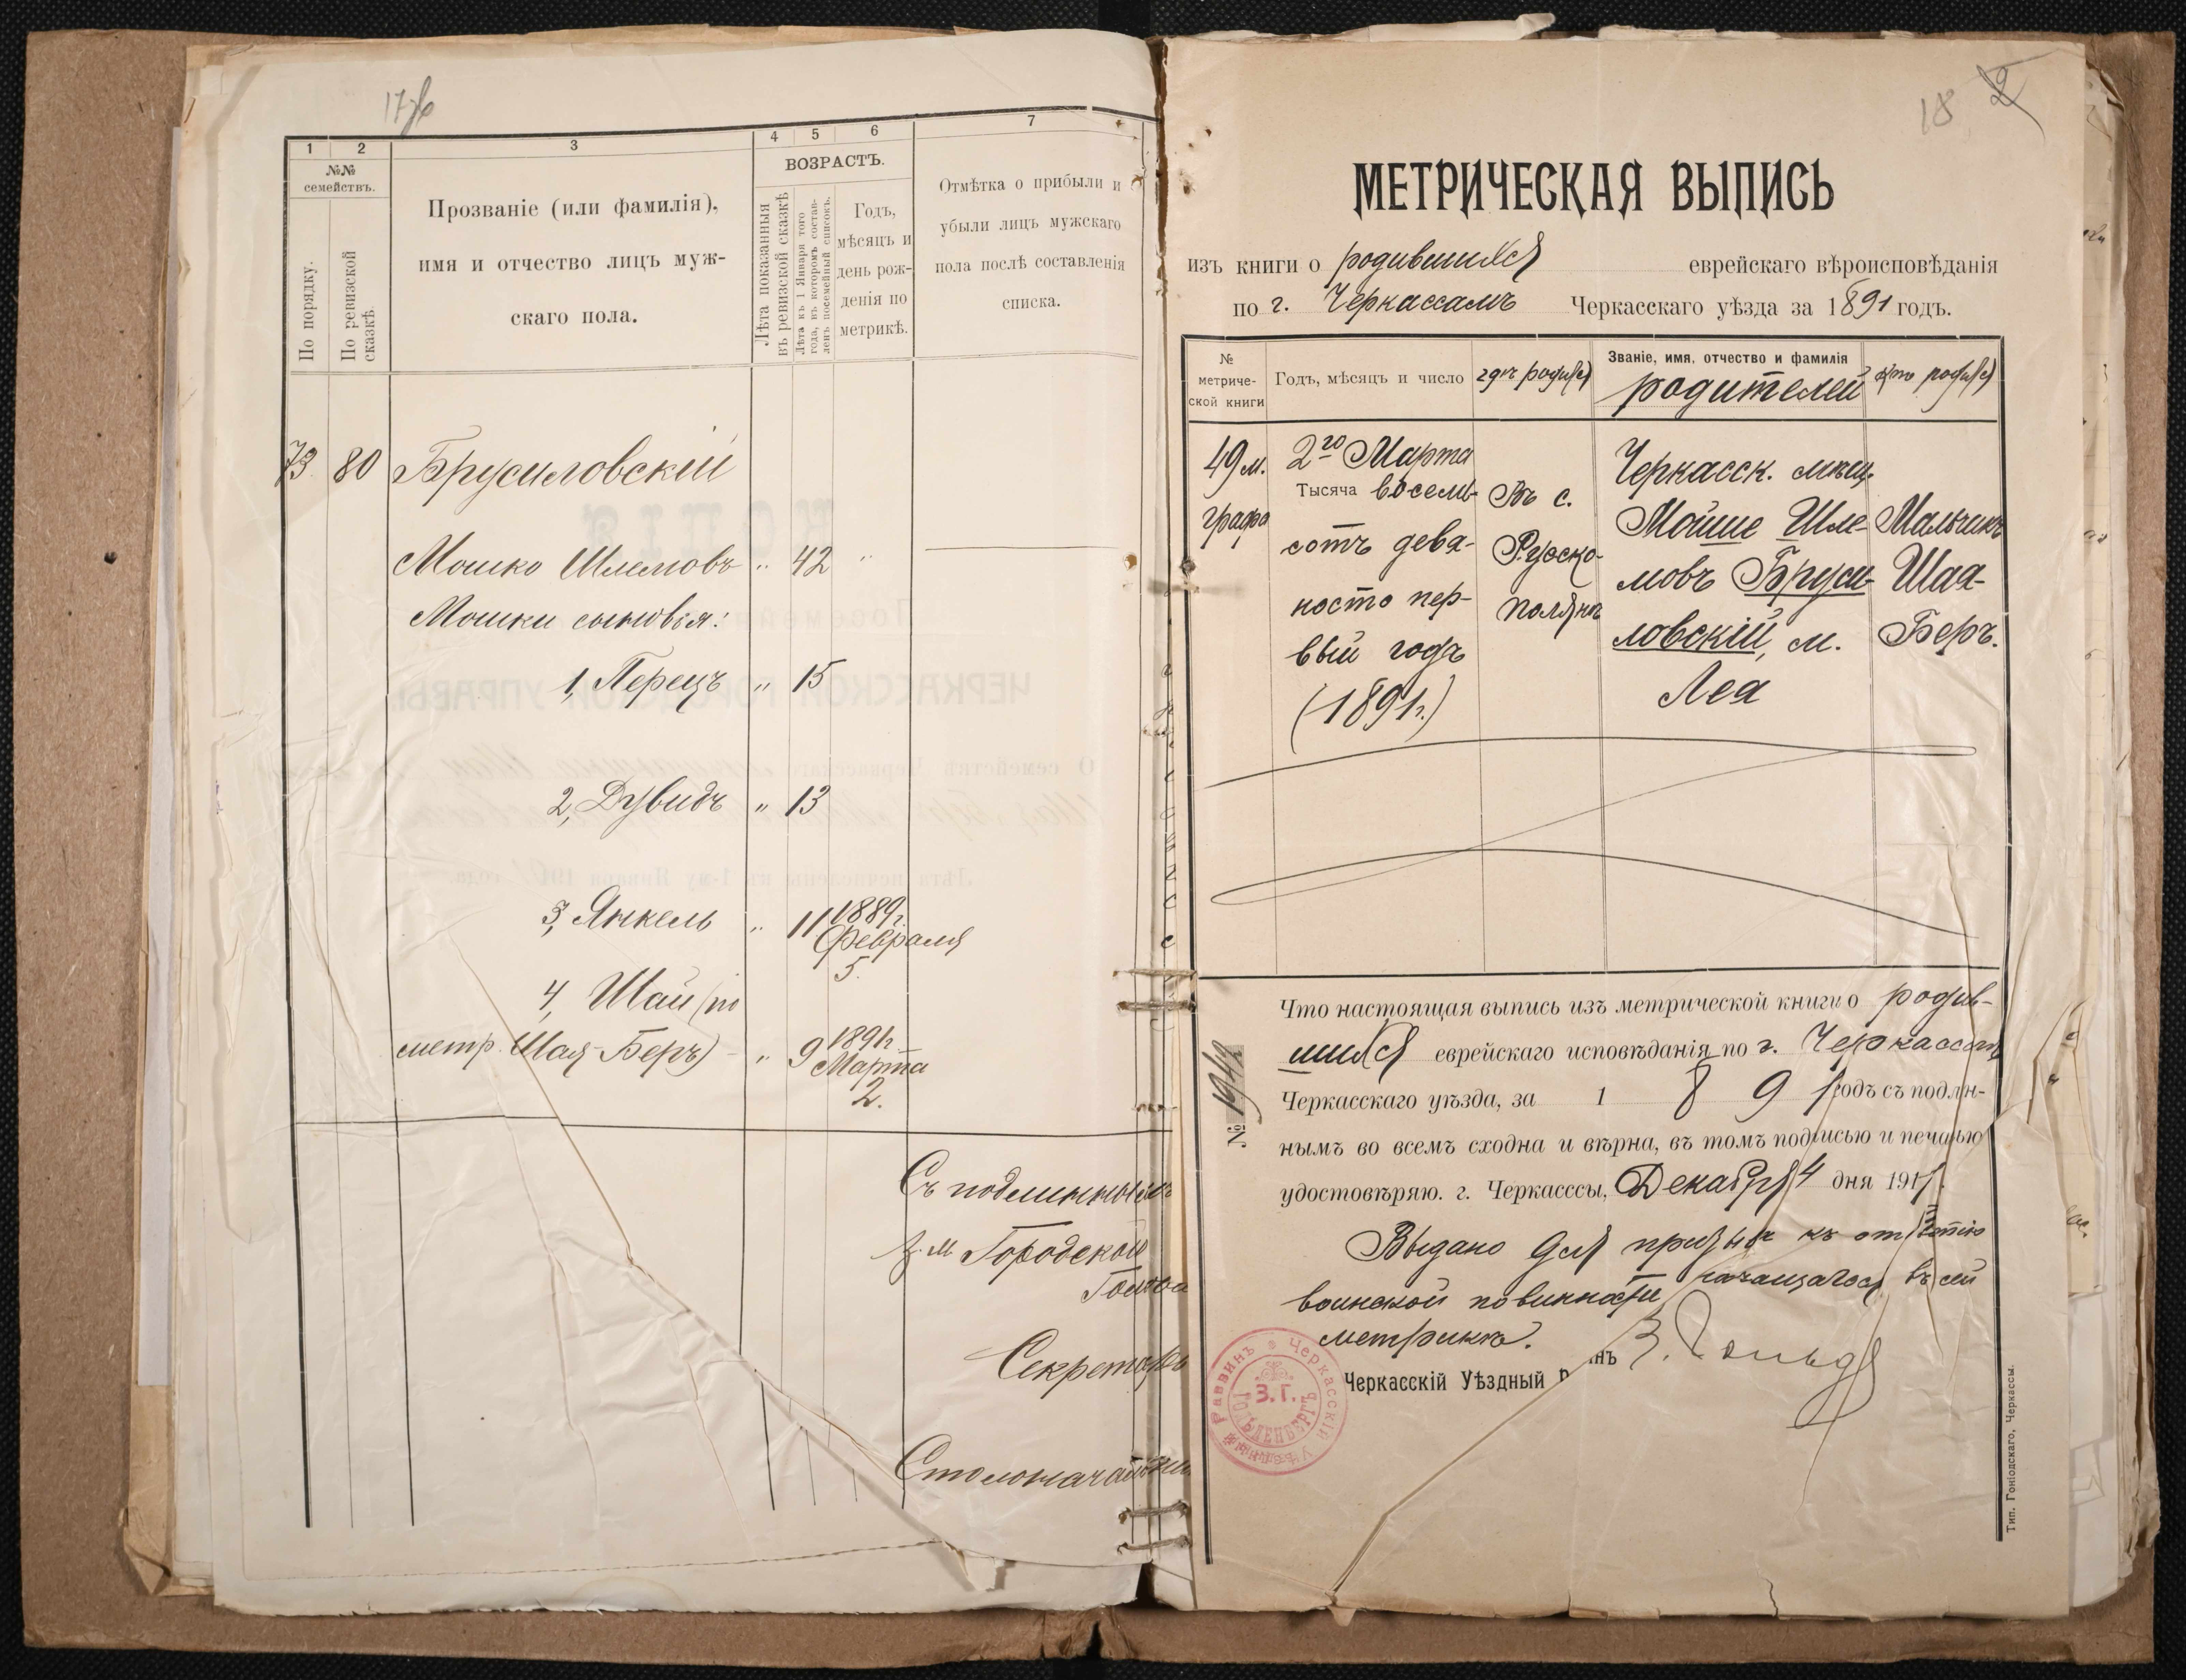 1 2 3 4 5 6 7
№№ семействъ.
По порядку.
По ревизской сказкѣ.
Прозваніе (или фамилія),
имя и отчество лицъ муж-
скаго пола.
ВОЗРАСТЪ.
Лѣта показанныя въ ревизской сказкѣ
Лѣта къ 1 Января того года, въ которомъ состав-ленъ посемейный списокъ.
Годъ,
мѣсяцъ и
день рож-
денія по
метрикѣ.
Отмѣтка о прибыли и
убыли лицъ мужскаго
пола послѣ составленія
списка.
73 80 Брусиловскій
Мошко Шлемовъ " 42 "
Мошки сыновья:
1, Перецъ " 15
2, Дувидъ " 13
3, Янкель " 11 1889 г.
Февраля
5.
4, Шай (по
метр. Шая-Беръ) " 9 1891 г.
Марта
2.
Съ подлиннымъ
Городской
Голова
Секретарь
Столоначальникъ
18 2
МЕТРИЧЕСКАЯ ВЫПИСЬ
изъ книги о родившихся еврейскаго вѣроисповѣданія
по г. Черкассамъ Черкасскаго уѣзда за 1891 годъ.
№
метриче-
ской книги
Годъ, мѣсяцъ и число
гдѣ родился
Званіе, имя, отчество и фамилія
родителей
кто родился
49 м.
графа
2го Марта
Тысяча восемь-
сотъ девя-
носто пер-
вый годъ
(1891 г.)
Въ с.
Русско-
полянѣ
Черкасск. мѣщ.
Мойше Шле-
мовъ Бруси-
ловскій, м.
Леа
Мальчикъ
Шая-
Беръ.
Что настоящая выпись изъ метрической книги о родив-
шихся еврейскаго исповѣданія по г. Черкассамъ
Черкасскаго уѣзда, за 1 8 9 1 годъ съ подлин-
нымъ во всемъ сходна и вѣрна, въ томъ подписью и печатью
удостовѣряю. г. Черкасссы, Декабря 4 дня 1911.
№ 1942
Выдано для
воинской повинности въ сей
метрикѣ.
Черкасскій Уѣздный
Черкасскій Уѣздный Раввинъ
З. Г.
ГОЛЬДЕНБЕРГЪ
Тип. Гоніодскаго, Черкассы.